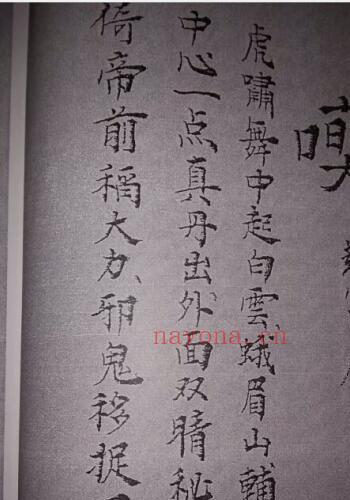 虎嘯舞中起白雲蛾眉山輔
中心一点真丹出外面双睛秘
倚帝前稱大力邪鬼移捉
nayona.cn